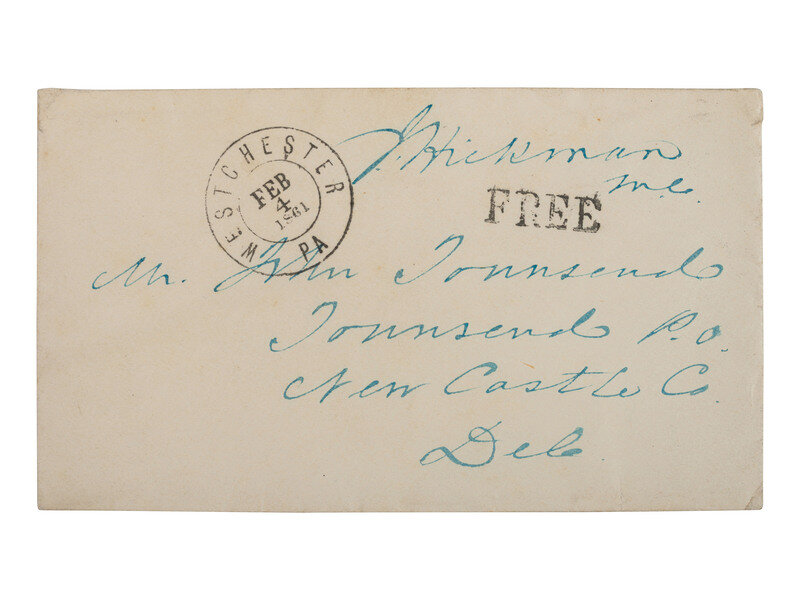 J. Hickman
M.C.
FREE
WESTCHESTER PA
FEB
4
1861
Mr. John Townsend
Townsend P.O.
New Castle Co
Del